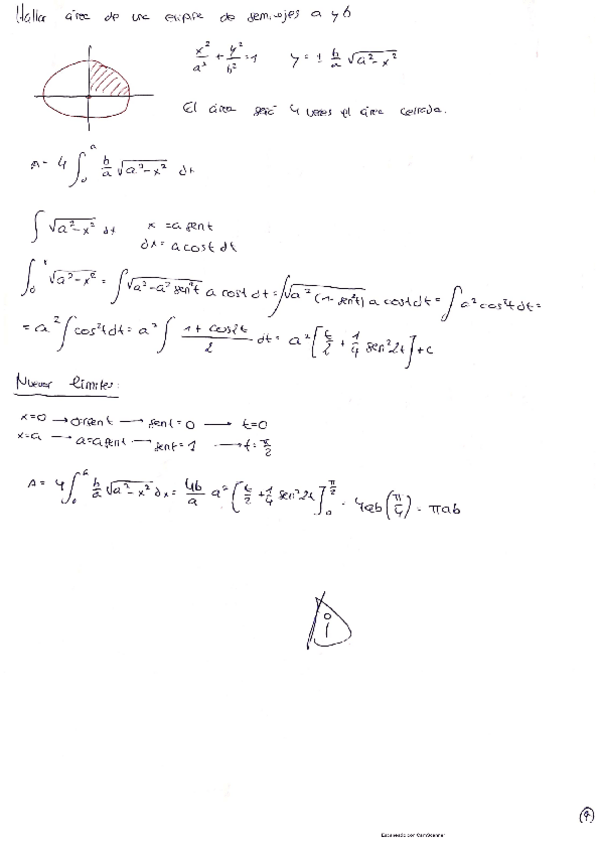 Hallar área de una elipse de semiejes a y b
x²/a² + y²/b² = 1 y = ± b/a √(a²-x²)
El área será 4 veces el área cerrada.
A = 4 ∫₀ᵃ b/a √(a²-x²) dx
∫ √(a²-x²) dx x = a sent
dx = a cost dt
∫₀ √(a²-x²) = ∫ √(a²-a² sen²t) a cost dt = ∫ √(a² (1-sen²t)) a cost dt = ∫ a² cos²t dt =
= a² ∫ cos²t dt = a² ∫ (1 + cos2t)/2 dt = a² [t/2 + 1/4 sen²2t] + c
Nuevos límites:
x=0 → 0=asent → sent=0 → t=0
x=a → a=asent → sent=1 → t=π/2
A = 4 ∫₀ᵃ b/a √(a²-x²) dx = 4b/a a² [t/2 + 1/4 sen²2t]₀^(π/2) = 4ab (π/4) = πab
Escaneado por CamScanner